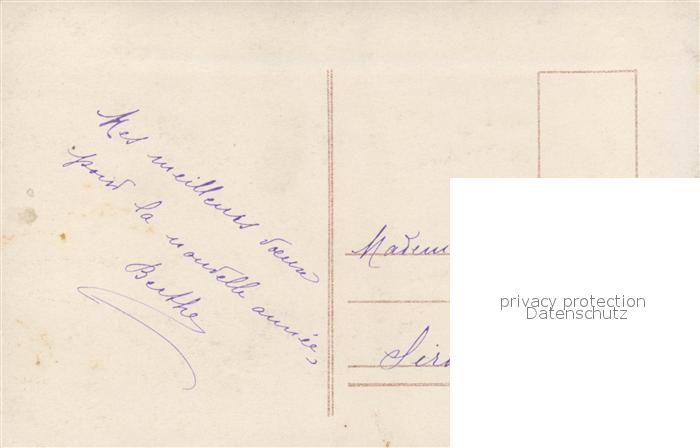 Mes meilleurs voeux
pour la nouvelle année,
Berthe
Madem
privacy protection
Datenschutz